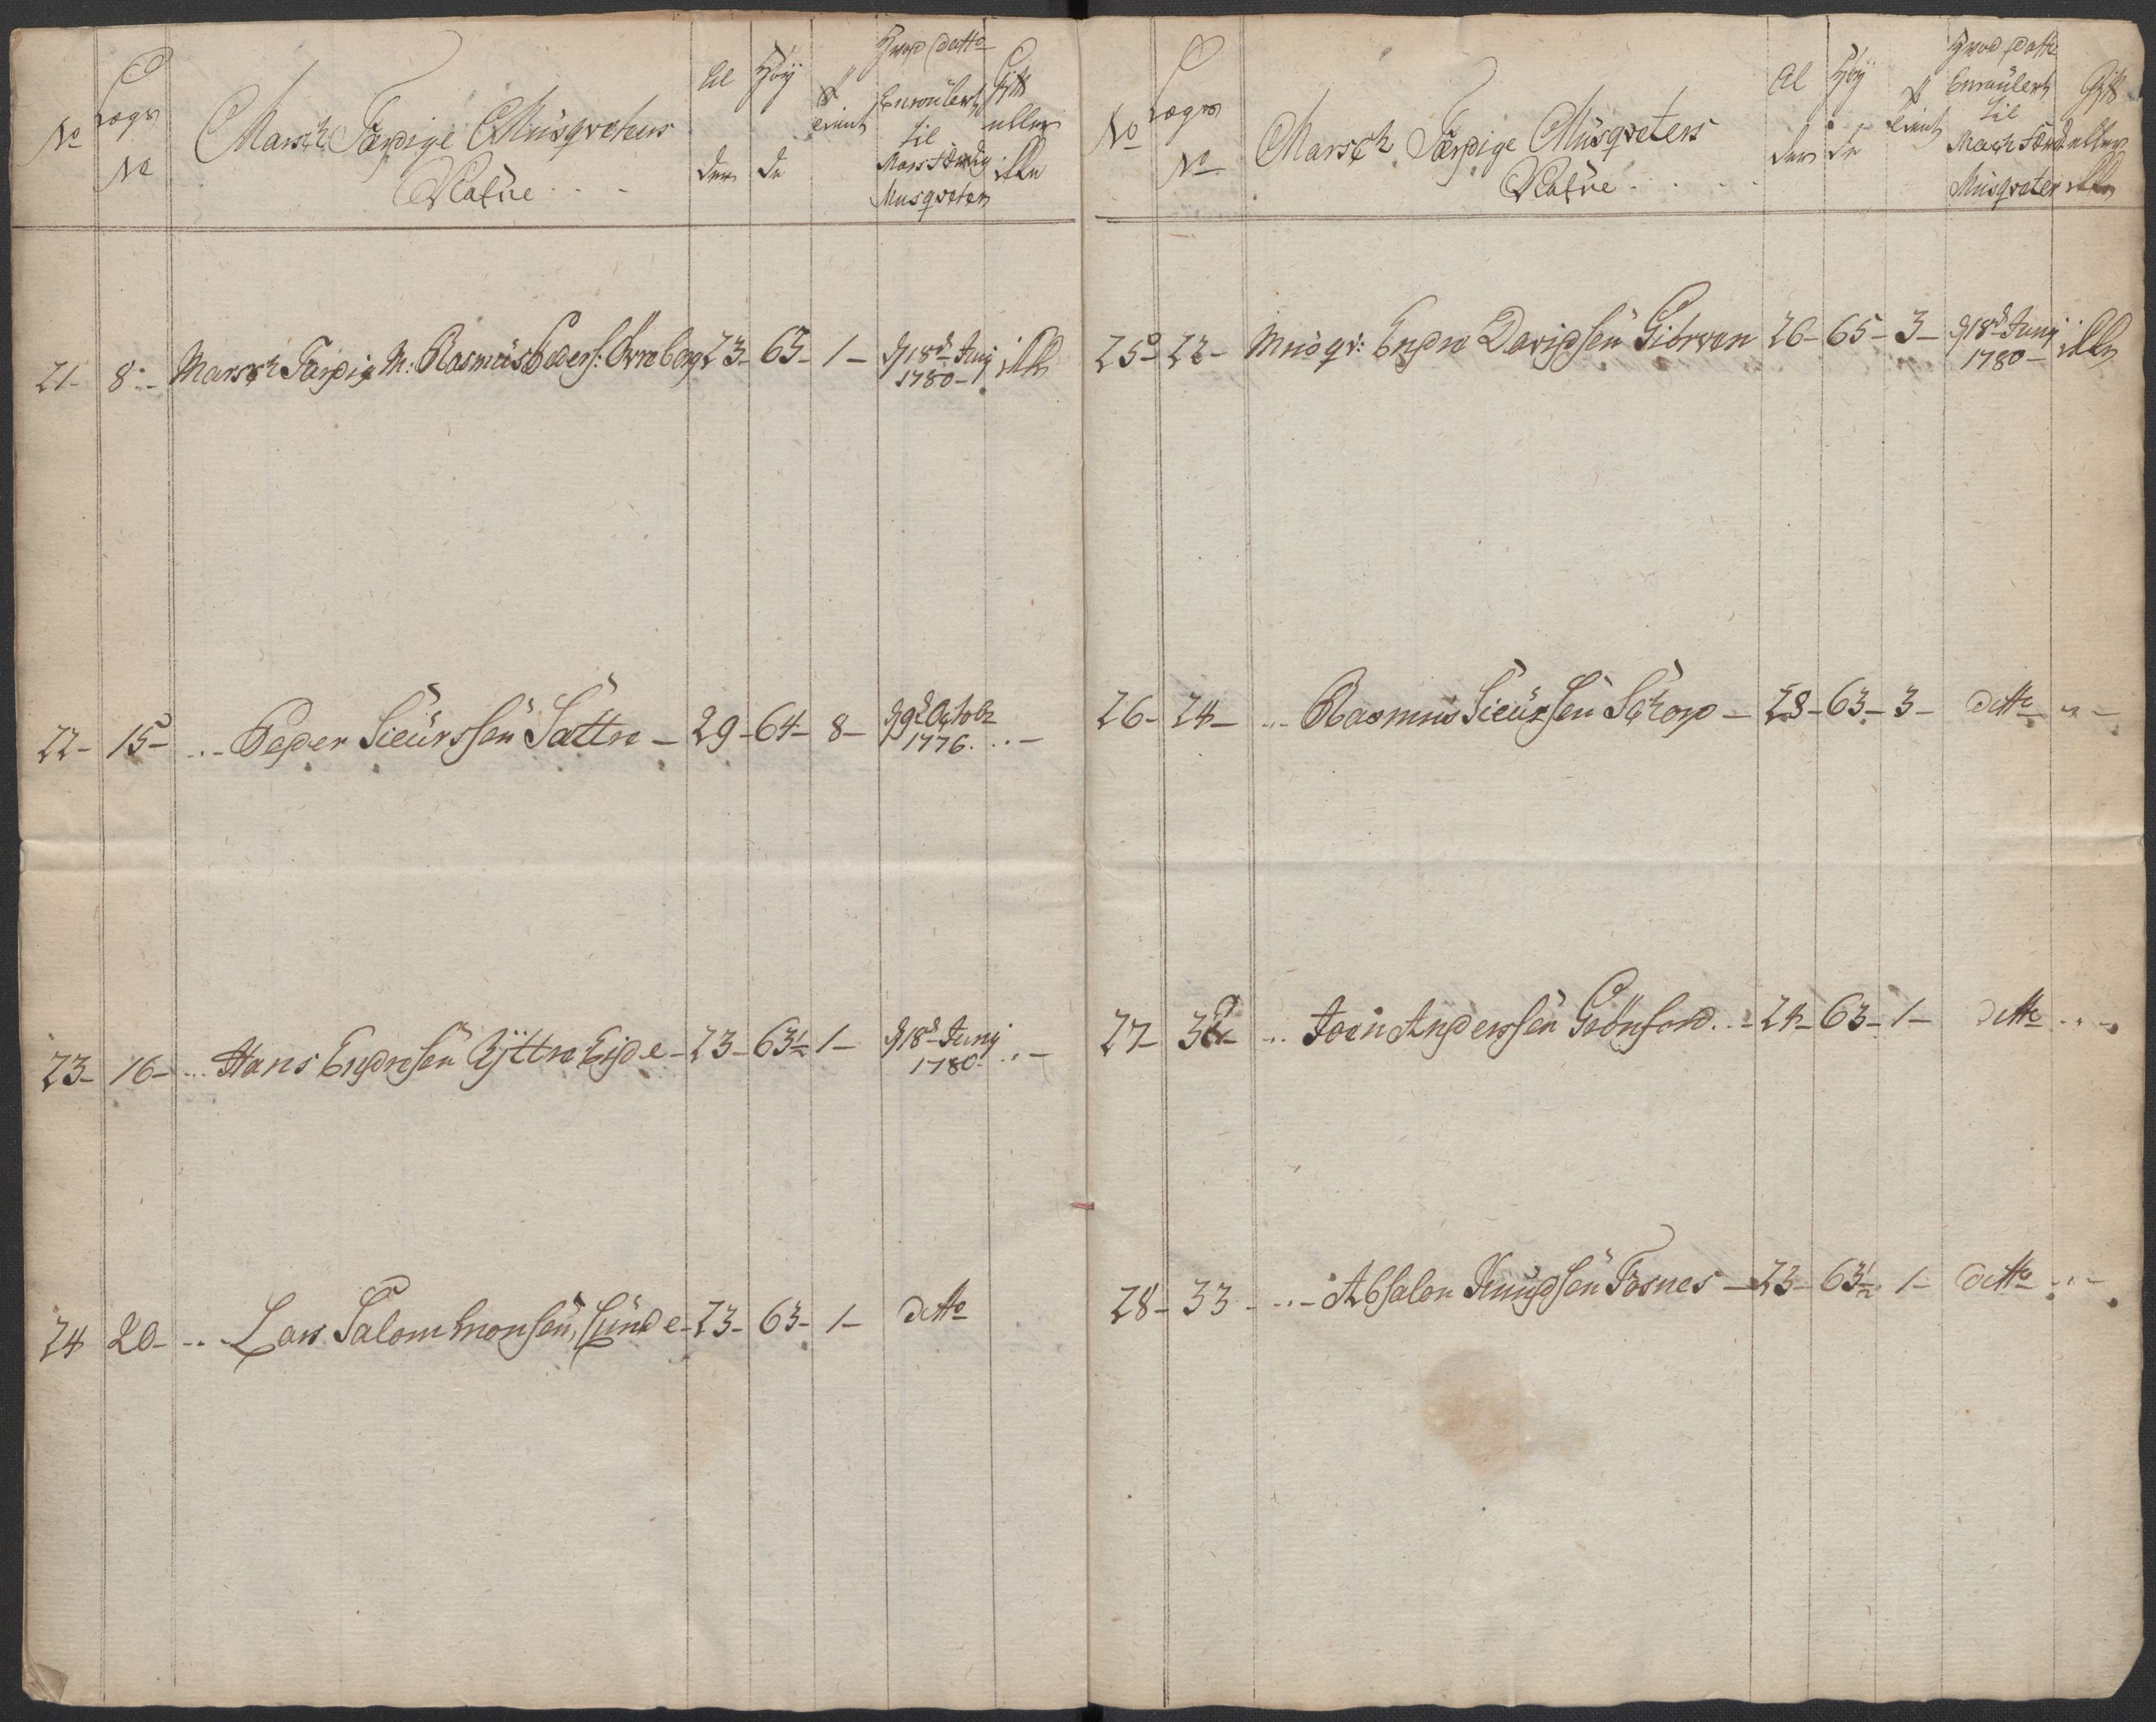 No
Lægs No
Marsch Færdige Musqveteers Nafne . . .
Al der
Høy de
Tient
Hvad Datto Enroulert til Mars Færdig Musqveteer
Gift eller ikke
21- 8- Marsch Færdig M: Rasmus Peders: Ørneberg 23- 63- 1- d 18de Junj 1780- ikke
22- 15- „- Peder Sieurssen Sættre - 29- 64- 8- d 9de Octobr 1776. „-
23- 16- „- Hans Endresen Yttre Eide- 23- 63½ 1- d 18de Junj 1780- „-
24 20- „- Lars Salommonsen Lunde- 23- 63- 1- ditto
No
Lægs No
Marsch Færdige Musqveteers Nafne . . . .
Al der
Høy de
Tient
Hvad Datto Enroulert til Mach Færd Musqveteer
Gift eller ikke
25- 22- Musqv: Endre Davidsen 26- 65- 3- d 18de Junj 1780- ikke
26- 24- „- Rasmus Sieursen 28- 63- 3- ditto „-
27- 32- „- Joen Anderssen 24- 63- 1- ditto „-
28- 33- „- Absalon Knudsen Fosnes- 23- 63½ 1- ditto „-